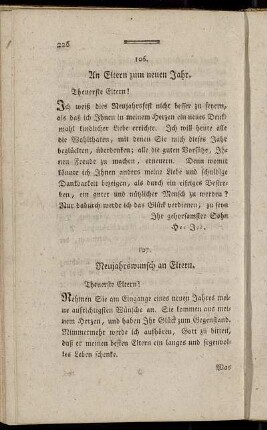 226
106.
An Eltern zum neuen Jahr.
Theuerste Eltern!
Ich weiß dies Neujahrsfest nicht besser zu feyern,
als daß ich Ihnen in meinem Herzen ein neues Denk-
mahl kindlicher Liebe errichte. Ich will heute alle
die Wohlthaten, mit denen Sie mich dieses Jahr
beglückten, überdenken; alle die guten Vorsätze, Ih-
nen Freude zu machen, erneuern. Denn womit
könnte ich Ihnen anders meine Liebe und schuldige
Dankbarkeit bezeigen, als durch ein eifriges Bestre-
ben, ein guter und nützlicher Mensch zu werden?
Nur dadurch werde ich das Glück verdienen, zu seyn
Ihr gehorsamster Sohn
107.
Neujahrswunsch an Eltern.
Theuerste Eltern!
Nehmen Sie am Eingange eines neuen Jahres mei-
ne aufrichtigsten Wünsche an. Sie kommen aus mei-
nem Herzen, und haben Ihr Glück zum Gegenstand.
Nimmermehr werde ich aufhören, Gott zu bitten,
daß er meinen besten Eltern ein langes und segenvol-
les Leben schenke.
Was